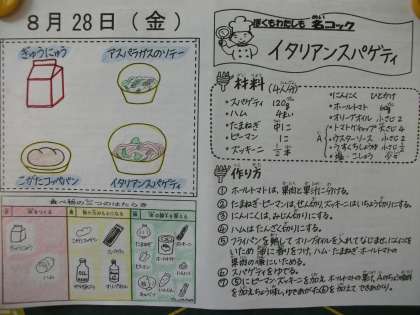 8月28日(金)
ぎゅうにゅう
アスパラガスのソテー
こがたコッペパン
イタリアンスパゲティ
食べ物の三つのはたらき
ぼくもわたしも名コック
イタリアンスパゲティ
材料(4人分)
・スパゲティ 120g
・ハム 4まい
・たまねぎ 中1こ
・ピーマン 1こ
・ズッキーニ 1/2本
・にんにく ひとかけ
・ホールトマト 60g
・オリーブオイル 小さじ2
A
・トマトケチャップ 大さじ4
・ウスターソース 小さじ1
・うすくちしょうゆ 小さじ1
・塩・こしょう 少々
作り方
① ホールトマトは、果肉と果汁に分ける。
② たまねぎ・ピーマンは、せん切り、ズッキーニはいちょう切りにする。
③ にんにくは、みじん切りにする。
④ ハムはたんざく切りにする。
⑤ フライパンを熱してオリーブオイルを入れてなじませ、にんにくを
いため、油に香りをつけ、ハム・たまねぎ・ホールトマトの
果肉の順にいためる。
⑥ スパゲティをゆでる。
⑦ ⑤にピーマン、ズッキーニを加え、ホールトマトの果汁、Aのちょうみ料
を加えちょうみし、ゆであがった⑥を加えてできあがり。